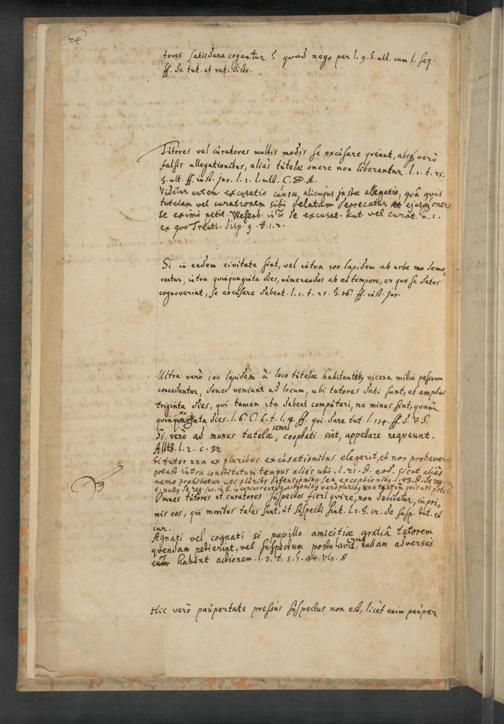 24
tores satisdare cogantur? quod nego per l. 9. §. ult. cum l. seq.
ff. de tut. et rat. distr.
Tutores vel curatores multis modis se excusare queant, absq vero
falsis allegationibus, alias tutelae onere non liberantur. l. 1. t. 25.
§. ult. ff. inst. jur. l. 1. l. ult. C.
Videtur autem excusatio causae, alicujus justae allegatio, qua quis
tutelam vel curationem sibi delatam deprecatur et ejus onere
se eximi petit. Wesenb. se excusat. tut vel curat. n. 1.
ex quo Treutl. disp. 9. t. 12.
Si in eadem civitate sint, vel intra 100 lapidem ab urbe
rentur, intra quinquaginta dies, numerandos ab eo tempore, ex quo se datos
cognoverint, se excusare debent. l. 1. t. 25. §. 16. ff. inst. jur.
Ultra vero 100 lapidem a loco tutelae habitantibus vicena millia passuum
conceduntur, donec veniant ad locum, ubi tutores dati sunt, et amplius
triginta dies, qui tamen ita debent computari, ne minus sint, quam
quinquaginta dies. l. 6. C. h. t. l. 4. ff. qui dare tut. l. 134. ff. d. V. S.
Si vero ad munus tutelae, semel cooptati sint, appelare nequeunt.
l. 2. c. 32
Si tutor una ex pluribus excusationibus elegerit, et non probaverit
potest intra constitutum tempus aliis uti. l. 21. §. eod. sicut alias
nemo prohibetur uti pluribus defensionibus seu exceptionibus
Omnes tutores et curatores suspectos fieri quire, non dubitatur, impri,
mis eos, qui moribus tales sunt, ut suspecti sint. l. 1. §. 12. de susp. tut. et
cur.
Agnati vel cognati si pupillo amicitiae gratia tutorem
quendam petierint, vel suspectum postulaverint, nullam adversus
eum habent actionem. l. 3. t. 5. §.
Hic vero paupertate pressus suspectus non est, licet enim pauper